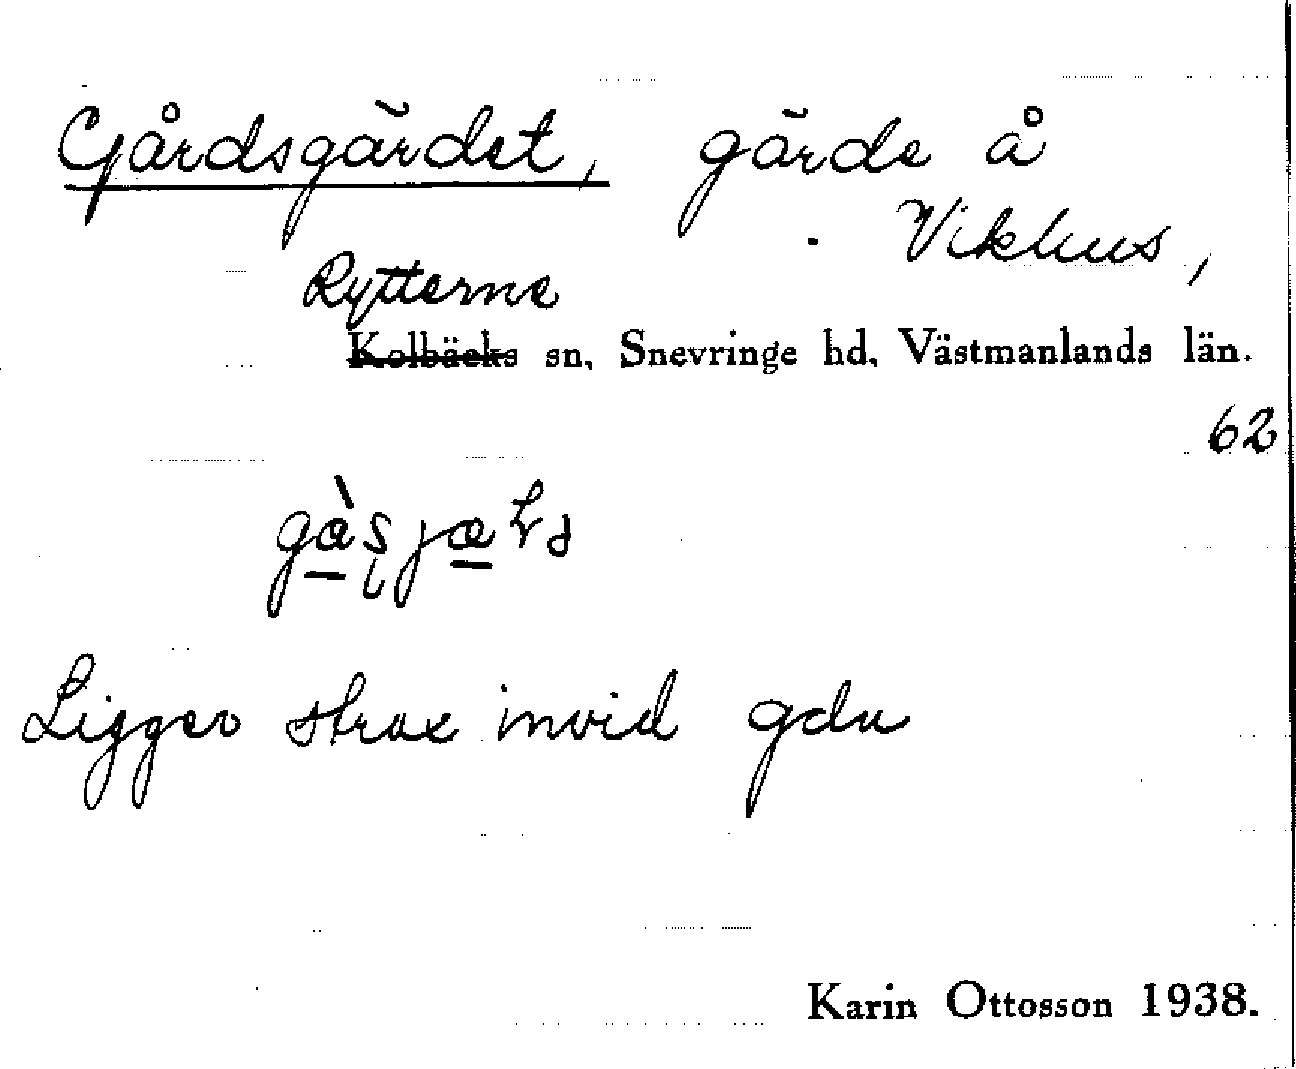 Gårdsgärdet, gärde å
Vikhus,
Rytterne
Kolbäcks sn, Snevringe hd, Västmanlands län.
62
Ligger strax invid gdn
Karin Ottosson 1938.